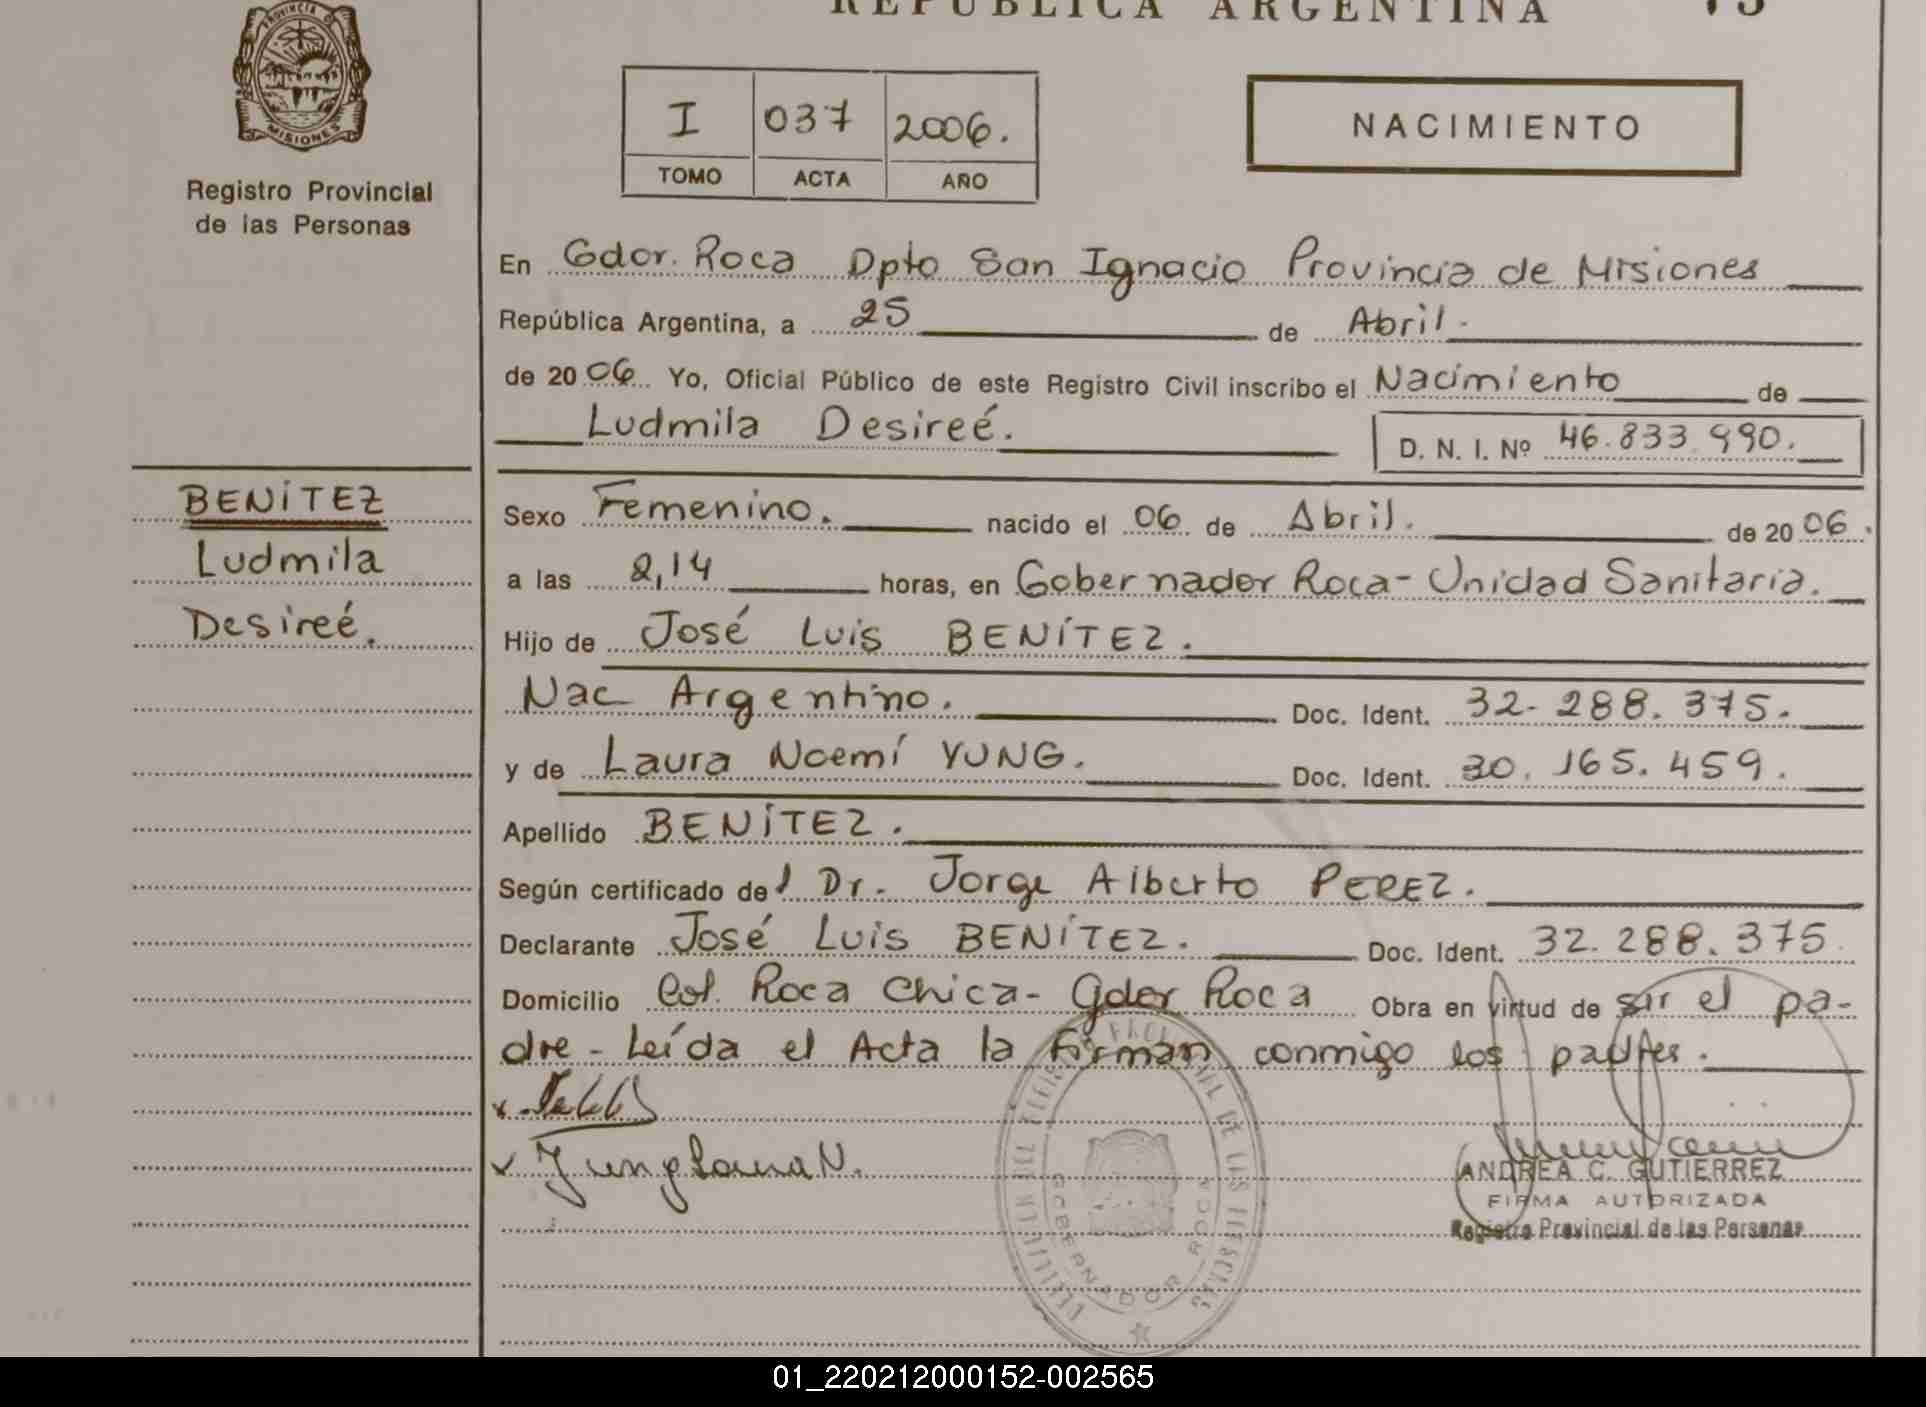 REPUBLICA ARGENTINA
PROVINCIA D
MISIONES
Registro Provincial
de las Personas
I 037 2006.
TOMO ACTA AÑO
NACIMIENTO
En Gdor. Roca Dpto San Ignacio Provincia de Misiones
República Argentina, a 25 de Abril.
de 2006 Yo, Oficial Público de este Registro Civil inscribo el Nacimiento de
Ludmila Desireé.
D. N. I. Nº 46.833.990.
BENÍTEZ
Ludmila
Desireé.
Sexo Femenino. nacido el 06 de Abril. de 2006.
a las 2,14 horas, en Gobernador Roca - Unidad Sanitaria.
Hijo de José Luis BENÍTEZ.
Nac Argentino. Doc. Ident. 32-288.375.
y de Laura Noemí YUNG. Doc. Ident. 30.165.459.
Apellido BENÍTEZ.
Según certificado del Dr. Jorge Alberto PEREZ.
Declarante José Luis BENÍTEZ. Doc. Ident. 32.288.375.
Domicilio Col. Roca Chica - Gdor Roca Obra en virtud de sir el pa-
dre - Leída el Acta la firman conmigo los padres.
Yung Laura N.
GOBERNADOR ROCA
ANDREA C. GUTIERREZ
FIRMA AUTORIZADA
Registro Provincial de las Personas
01_220212000152-002565